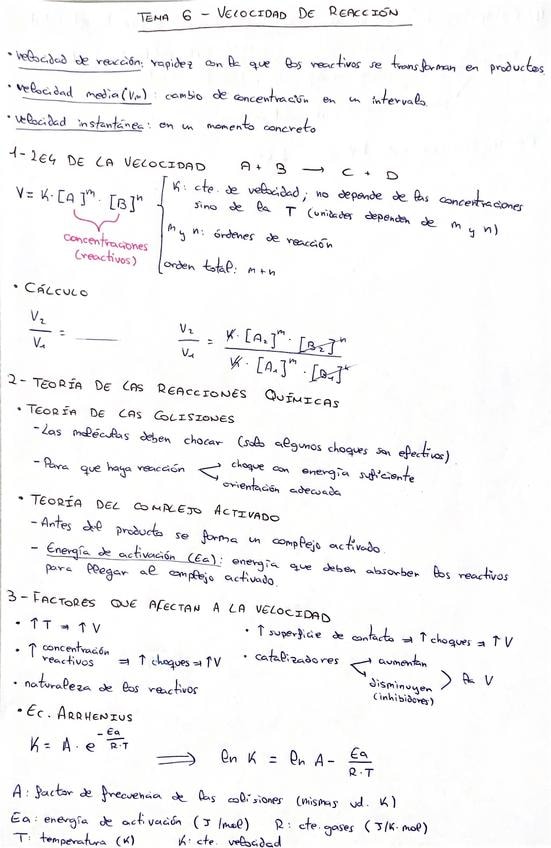 TEMA 6 – VELOCIDAD DE REACCIÓN
• velocidad de reacción: rapidez con la que los reactivos se transforman en productos
• velocidad media (Vm): cambio de concentración en un intervalo
• velocidad instantánea: en un momento concreto
1- LEY DE LA VELOCIDAD A + B → C + D
V = K · [A]^m · [B]^n
concentraciones (reactivos)
K: cte. de velocidad; no depende de las concentraciones
sino de la T (unidades dependen de m y n)
m y n: órdenes de reacción
orden total: m+n
• CÁLCULO
V₂/V₁ = ______ V₂/V₁ = K · [A₂]^m · [B₂]^n / K · [A₁]^m · [B₁]^n
2- TEORÍA DE LAS REACCIONES QUÍMICAS
• TEORÍA DE LAS COLISIONES
- Las moléculas deben chocar (solo algunos choques son efectivos)
- Para que haya reacción < choque con energía suficiente
orientación adecuada
• TEORÍA DEL COMPLEJO ACTIVADO
- Antes del producto se forma un complejo activado.
- Energía de activación (Ea): energía que deben absorber los reactivos
para llegar al complejo activado.
3- FACTORES QUE AFECTAN A LA VELOCIDAD
• ↑ T ⇒ ↑ V
• ↑ concentración reactivos ⇒ ↑ choques ⇒ ↑ V
• naturaleza de los reactivos
• ↑ superficie de contacto ⇒ ↑ choques ⇒ ↑ V
• catalizadores < aumentan
disminuyen (inhibidores) > la V
• EC. ARRHENIUS
K = A · e^(-Ea/R·T) ⟹ ln K = ln A − Ea/R·T
A: factor de frecuencia de las colisiones (mismas ud. K)
Ea: energía de activación (J/mol) R: cte. gases (J/K·mol)
T: temperatura (K) K: cte. velocidad